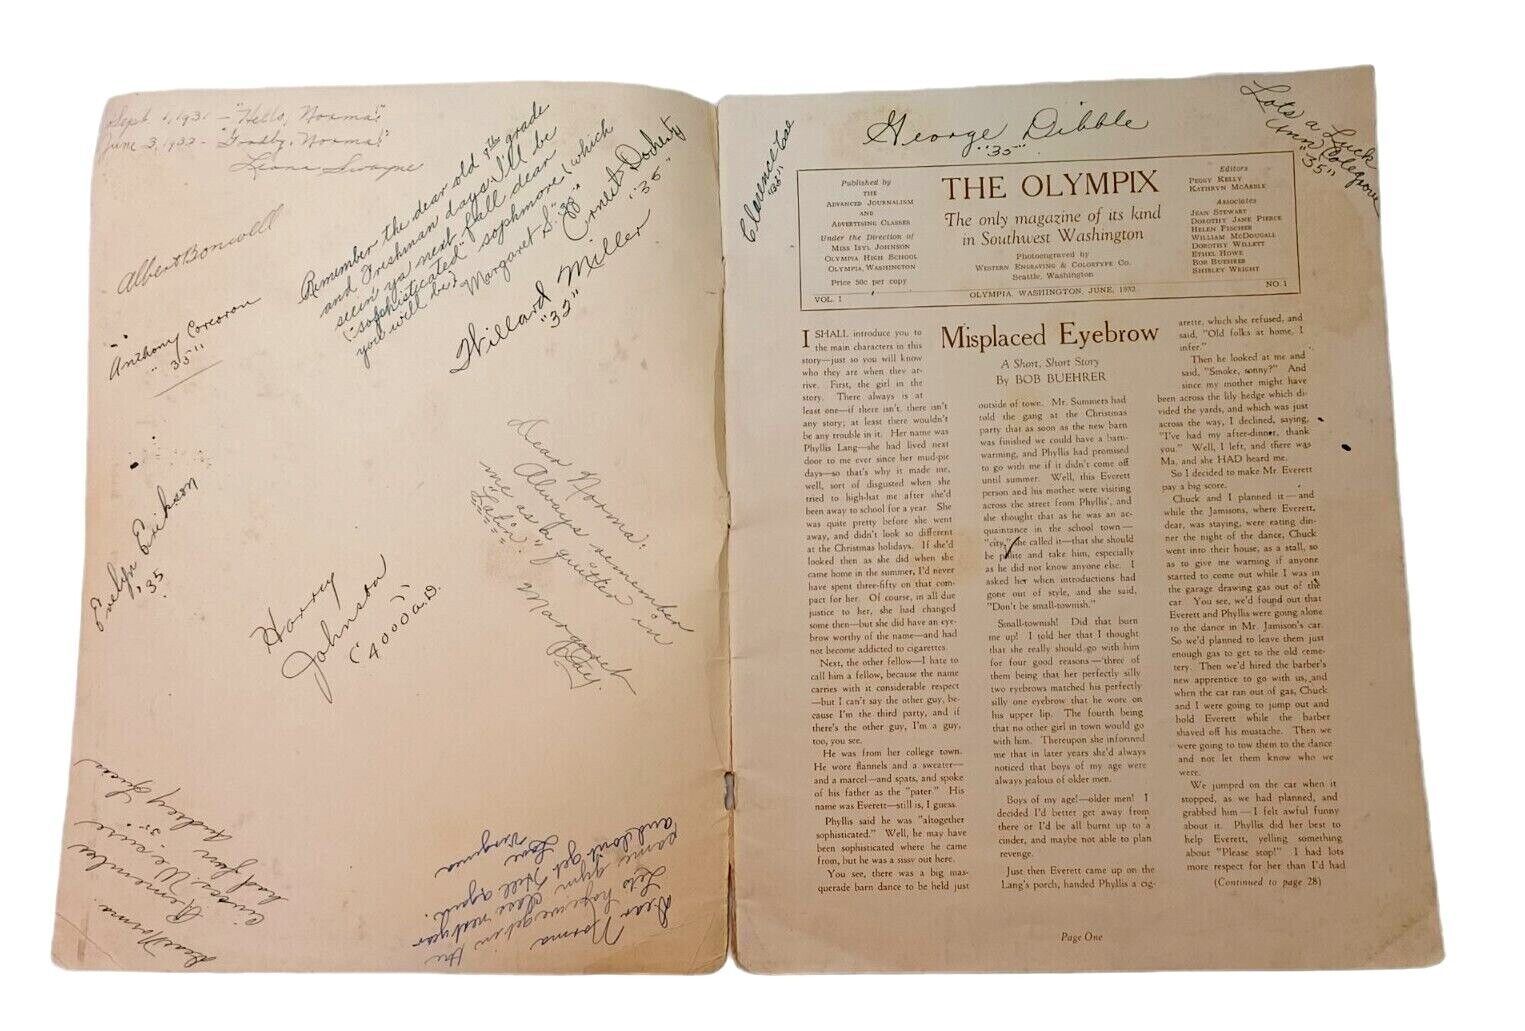 Sept 1, 1931 - "Hello, Norma!"
June 3, 1932 - "Goodby, Norma!"
Leona Swayne
Albert Bonwell
Anthony Corcoran
"35"
Remember the dear old 9th grade
and Freshman days. I'll be
seein' ya' next fall dear
("sophisticated" sophmore, (which
you will be)
Margaret S. "35"
Ernest Doherty
"35"
Willard Miller
"32"
Dear Norma:
Always remember
me as a quitter in
"Latin."
Margaret
Evelyn Erikson
'35
Harry
Johnson
(4000 A.D.)
Dear Norma
Remember
Civics. We sure
had fun.
Audrey
35
Dear Norma
Lets hope we get in the
same gym class next year
and don't get
Love
Virginia
Clarence
"35"
George Dibble
"35"
Lots a Luck
Ann Colegrove
"35"
Published by
THE
ADVANCED JOURNALISM
AND
ADVERTISING CLASSES
Under the Direction of
MISS IVYL JOHNSON
OLYMPIA HIGH SCHOOL
OLYMPIA, WASHINGTON
Price 50c per copy
THE OLYMPIX
The only magazine of its kind
in Southwest Washington
Photoengraved by
WESTERN ENGRAVING & COLORTYPE CO.
Seattle, Washington
Editors
PEGGY KELLY
KATHRYN MCARDLE
Associates
JEAN STEWART
DOROTHY JANE PIERCE
HELEN FISCHER
WILLIAM MCDOUGALL
DOROTHY WILLETT
ETHEL HOWE
BOB BUEHRER
SHIRLEY WRIGHT
VOL. 1
OLYMPIA, WASHINGTON, JUNE, 1932
NO. 1
I SHALL introduce you to
the main characters in this
story—just so you will know
who they are when they ar-
rive. First, the girl in the
story. There always is at
least one—if there isn't, there isn't
any story; at least there wouldn't
be any trouble in it. Her name was
Phyllis Lang—she had lived next
door to me ever since her mud-pie
days—so that's why it made me,
well, sort of disgusted when she
tried to high-hat me after she'd
been away to school for a year. She
was quite pretty before she went
away, and didn't look so different
at the Christmas holidays. If she'd
looked then as she did when she
came home in the summer, I'd never
have spent three-fifty on that com-
pact for her. Of course, in all due
justice to her, she had changed
some then—but she did have an eye-
brow worthy of the name—and had
not become addicted to cigarettes.
Next, the other fellow—I hate to
call him a fellow, because the name
carries with it considerable respect
—but I can't say the other guy, be-
cause I'm the third party, and if
there's the other guy, I'm a guy,
too, you see.
He was from her college town.
He wore flannels and a sweater—
and a marcel—and spats, and spoke
of his father as the "pater." His
name was Everett—still is, I guess.
Phyllis said he was "altogether
sophisticated." Well, he may have
been sophisticated where he came
from, but he was a sissy out here.
You see, there was a big mas-
querade barn dance to be held just
Misplaced Eyebrow
A Short, Short Story
By BOB BUEHRER
outside of towe. Mr. Summers had
told the gang at the Christmas
party that as soon as the new barn
was finished we could have a barn-
warming, and Phyllis had promised
to go with me if it didn't come off
until summer. Well, this Everett
person and his mother were visiting
across the street from Phyllis', and
she thought that as he was an ac-
quaintance in the school town—
"city," she called it—that she should
be polite and take him, especially
as he did not know anyone else. I
asked her when introductions had
gone out of style, and she said,
"Don't be small-townish."
Small-townish! Did that burn
me up! I told her that I thought
that she really should go with him
for four good reasons—three of
them being that her perfectly silly
two eyebrows matched his perfectly
silly one eyebrow that he wore on
his upper lip. The fourth being
that no other girl in town would go
with him. Thereupon she informed
me that in later years she'd always
noticed that boys of my age were
always jealous of older men.
Boys of my age!—older men! I
decided I'd better get away from
there or I'd be all burnt up to a
cinder, and maybe not able to plan
revenge.
Just then Everett came up on the
Lang's porch, handed Phyllis a cig-
arette, which she refused, and
said, "Old folks at home, I
infer."
Then he looked at me and
said, "Smoke, sonny?" And
since my mother might have
been across the lily hedge which di-
vided the yards, and which was just
across the way, I declined, saying,
"I've had my after-dinner, thank
you." Well, I left, and there was
Ma, and she HAD heard me.
So I decided to make Mr. Everett
pay a big score.
Chuck and I planned it—and
while the Jamisons, where Everett,
dear, was staying, were eating din-
ner the night of the dance, Chuck
went into their house, as a stall, so
as to give me warning if anyone
started to come out while I was in
the garage drawing gas out of the
car. You see, we'd found out that
Everett and Phyllis were going alone
to the dance in Mr. Jamison's car.
So we'd planned to leave them just
enough gas to get to the old ceme-
tery. Then we'd hired the barber's
new apprentice to go with us, and
when the car ran out of gas, Chuck
and I were going to jump out and
hold Everett while the barber
shaved off his mustache. Then we
were going to tow them to the dance
and not let them know who we
were.
We jumped on the car when it
stopped, as we had planned, and
grabbed him—I felt awful funny
about it. Phyllis did her best to
help Everett, yelling something
about "Please stop!" I had lots
more respect for her than I'd had
(Continued to page 28)
Page One